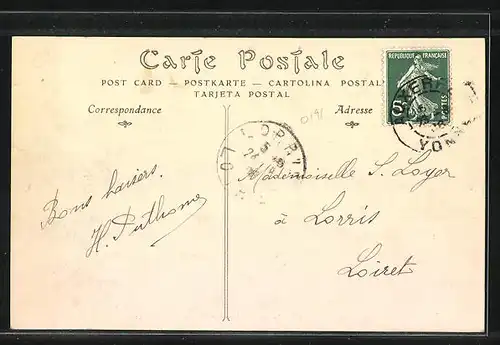 Carte Postale
POST CARD — POSTKARTE — CARTOLINA POSTALE
TARJETA POSTAL
Correspondance
Adresse
0191
REPUBLIQUE FRANÇAISE
5c
POSTES
YONNE
LORRIS
Bons baisers.
Mademoiselle S. Loyer
à Lorris
Loiret